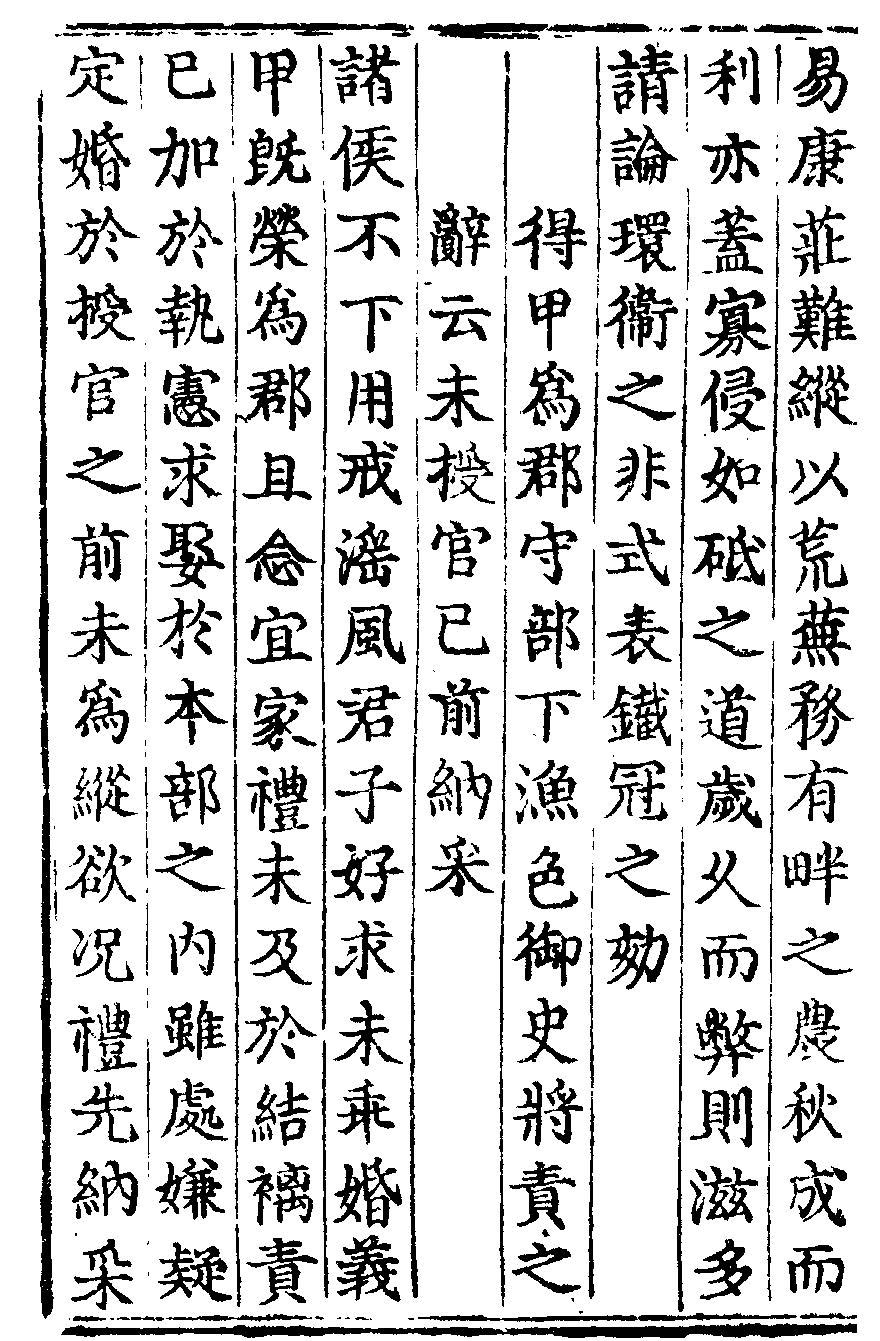 易康莊難縱以荒蕪務有畔之農秋成而
利亦蓋寡侵如砥之道歲乆而弊則滋多
請論環衞之非式表鐵冠之劾
得甲爲郡守部下漁色御史將責之
辭云未授官已前納采
諸侯不下用戒滛風君子好求未乖婚義
甲旣榮爲郡且念宜家禮未及於結褵責
已加於執憲求娶於本部之內雖處嫌疑
定婚於授官之前未爲縱欲况禮先納采